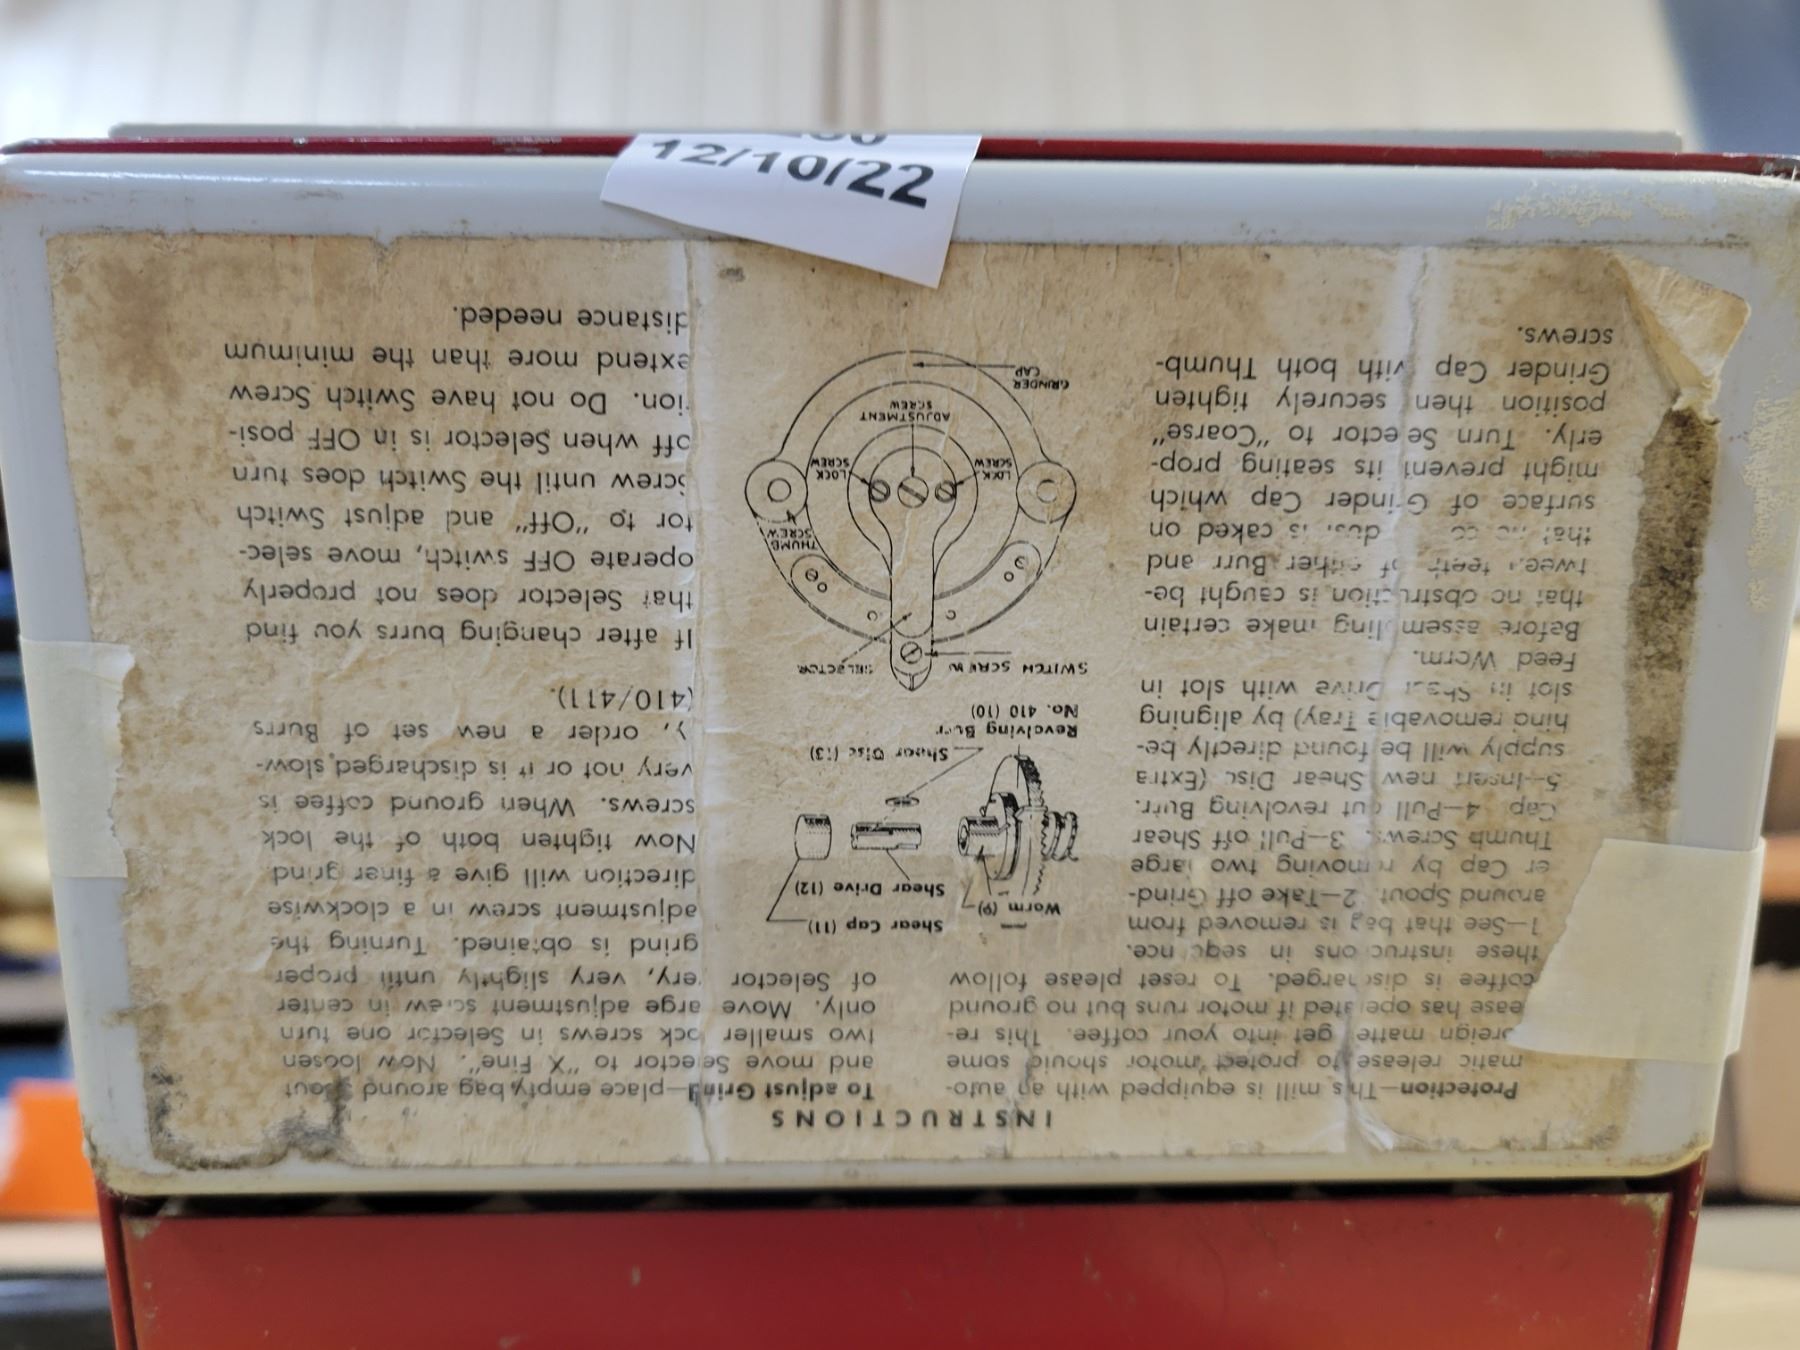 12/10/22
INSTRUCTIONS
Protection—This mill is equipped with an auto-
matic release to protect motor should some
foreign matter get into your coffee. This re-
lease has operated if motor runs but no ground
coffee is discharged. To reset please follow
these instructions in sequence.
1—See that bag is removed from
around Spout. 2—Take off Grind-
er Cap by removing two large
Thumb Screws. 3—Pull off Shear
Cap. 4—Pull out revolving Burr.
5—Insert new Shear Disc (Extra
supply will be found directly be-
hind removable Tray) by aligning
slot in Shear Drive with slot in
Feed Worm.
Before assembling make certain
that no obstruction is caught be-
tween teeth of either Burr and
that no dust is caked on
surface of Grinder Cap which
might prevent its seating prop-
erly. Turn Selector to "Coarse"
position then securely tighten
Grinder Cap with both Thumb-
screws.
Worm (9)
Shear Cap (11)
Shear Drive (12)
Shear Disc (13)
Revolving Burr
No. 410 (10)
SWITCH SCREW
SELECTOR
THUMB
SCREW
LOCK
SCREW
LOCK
SCREW
ADJUSTMENT
SCREW
GRINDER
CAP
To adjust Grind—place empty bag around spout
and move Selector to "X Fine". Now loosen
two smaller lock screws in Selector one turn
only. Move large adjustment screw in center
of Selector very, very slightly until proper
grind is obtained. Turning the
adjustment screw in a clockwise
direction will give a finer grind.
Now tighten both of the lock
screws. When ground coffee is
very hot or it is discharged slow-
ly, order a new set of Burrs
(410/411).
If after changing burrs you find
that Selector does not properly
operate OFF switch, move selec-
tor to "Off" and adjust Switch
Screw until the Switch does turn
off when Selector is in OFF posi-
tion. Do not have Switch Screw
extend more than the minimum
distance needed.